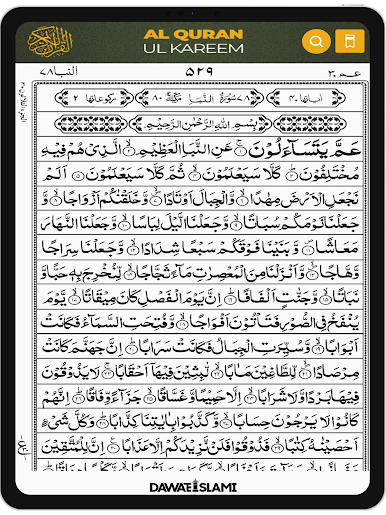 AL QURAN
UL KAREEM
عـم ٣٠ ٥٢٩ النبا ٧٨
اٰياتها ٤٠ ٧٨ سُوْرَةُ النَّبَاِ مَكِّيَّةٌ ٨٠ ركوعاتها ٢
بِسْمِ اللهِ الرَّحْمٰنِ الرَّحِيْمِ
عَمَّ يَتَسَآءَلُوْنَ ۚ﴿١﴾ عَنِ النَّبَاِ الْعَظِيْمِ ۙ﴿٢﴾ الَّذِيْ هُمْ فِيْهِ
مُخْتَلِفُوْنَ ؕ﴿٣﴾ كَلَّا سَيَعْلَمُوْنَ ۙ﴿٤﴾ ثُمَّ كَلَّا سَيَعْلَمُوْنَ ﴿٥﴾ اَلَمْ
نَجْعَلِ الْاَرْضَ مِهٰدًا ۙ﴿٦﴾ وَّ الْجِبَالَ اَوْتَادًا ۪ۙ﴿٧﴾ وَّ خَلَقْنٰكُمْ اَزْوَاجًا ۙ﴿٨﴾ وَّ
جَعَلْنَا نَوْمَكُمْ سُبَاتًا ۙ﴿٩﴾ وَّ جَعَلْنَا الَّيْلَ لِبَاسًا ۙ﴿١٠﴾ وَّ جَعَلْنَا النَّهَارَ
مَعَاشًا ۪﴿١١﴾ وَّ بَنَيْنَا فَوْقَكُمْ سَبْعًا شِدَادًا ۙ﴿١٢﴾ وَّ جَعَلْنَا سِرَاجًا
وَّهَّاجًا ۪ۙ﴿١٣﴾ وَّ اَنْزَلْنَا مِنَ الْمُعْصِرٰتِ مَآءً ثَجَّاجًا ۙ﴿١٤﴾ لِّنُخْرِجَ بِهٖ حَبًّا وَّ
نَبَاتًا ۙ﴿١٥﴾ وَّ جَنّٰتٍ اَلْفَافًا ؕ﴿١٦﴾ اِنَّ يَوْمَ الْفَصْلِ كَانَ مِيْقَاتًا ۙ﴿١٧﴾ يَّوْمَ
يُنْفَخُ فِي الصُّوْرِ فَتَاْتُوْنَ اَفْوَاجًا ۙ﴿١٨﴾ وَّ فُتِحَتِ السَّمَآءُ فَكَانَتْ
اَبْوَابًا ۙ﴿١٩﴾ وَّ سُيِّرَتِ الْجِبَالُ فَكَانَتْ سَرَابًا ؕ﴿٢٠﴾ اِنَّ جَهَنَّمَ كَانَتْ
مِرْصَادًا ۪ۙ﴿٢١﴾ لِّلطَّاغِيْنَ مَاٰبًا ۙ﴿٢٢﴾ لّٰبِثِيْنَ فِيْهَاۤ اَحْقَابًا ۚ﴿٢٣﴾ لَا يَذُوْقُوْنَ
فِيْهَا بَرْدًا وَّ لَا شَرَابًا ۙ﴿٢٤﴾ اِلَّا حَمِيْمًا وَّ غَسَّاقًا ۙ﴿٢٥﴾ جَزَآءً وِّفَاقًا ؕ﴿٢٦﴾ اِنَّهُمْ
كَانُوْا لَا يَرْجُوْنَ حِسَابًا ۙ﴿٢٧﴾ وَّ كَذَّبُوْا بِاٰيٰتِنَا كِذَّابًا ؕ﴿٢٨﴾ وَ كُلَّ شَيْءٍ
اَحْصَيْنٰهُ كِتٰبًا ۙ﴿٢٩﴾ فَذُوْقُوْا فَلَنْ نَّزِيْدَكُمْ اِلَّا عَذَابًا ﴿٣٠﴾ اِنَّ لِلْمُتَّقِيْنَ
DAWATEISLAMI